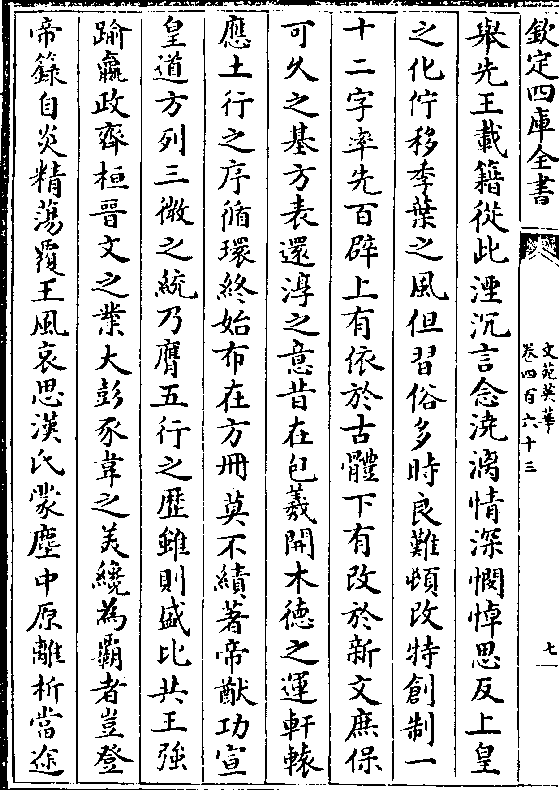 欽定四庫全書
文苑英華
卷四百六十三
七
舉先王載籍從此湮沉言念澆漓情深憫悼思反上皇
之化佇移季葉之風但習俗多時良難頓改特創制一
十二字率先百辟上有依於古體下有改於新文庶保
可久之基方表還淳之意昔在包羲開木德之運軒轅
應土行之序循環終始布在方冊莫不績著帝猷功宣
皇道方列三微之統乃膺五行之歴雖則盛比共王強
踰嬴政齊桓晉文之業大彭豕韋之美纔為霸者豈登
帝籙自炎精蕩覆王風哀思漢氏蒙塵中原離析當途